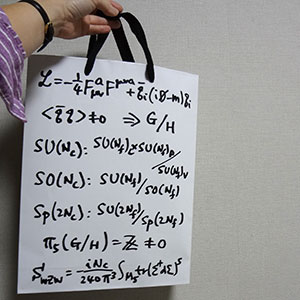 ℒ = -1/4 F^a_μν F^μνa + q̄_i (iD̸ - m) q_i
<q̄q> ≠ 0 ⇒ G/H
SU(N_c): SU(N_f)×SU(N_f)_R/SU(N_f)_V
SO(N_c): SU(N_f)/SO(N_f)
Sp(2N_c): SU(2N_f)/Sp(2N_f)
π_5(G/H) = ℤ ≠ 0
S_WZW = iN_c/240π² ∫_M_5 tr(Σ†dΣ)^5